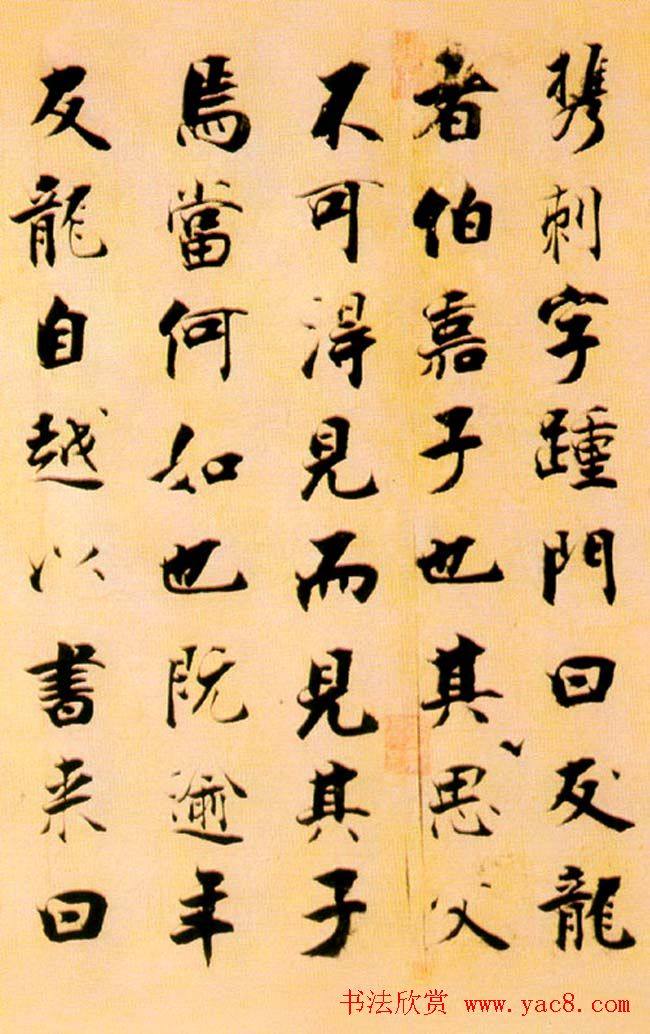 携刺字踵門曰友龍
者伯嘉子也其思父
不可得見而見其子
焉當何如也既逾年
友龍自越以書来曰
书法欣赏 www.yac8.com